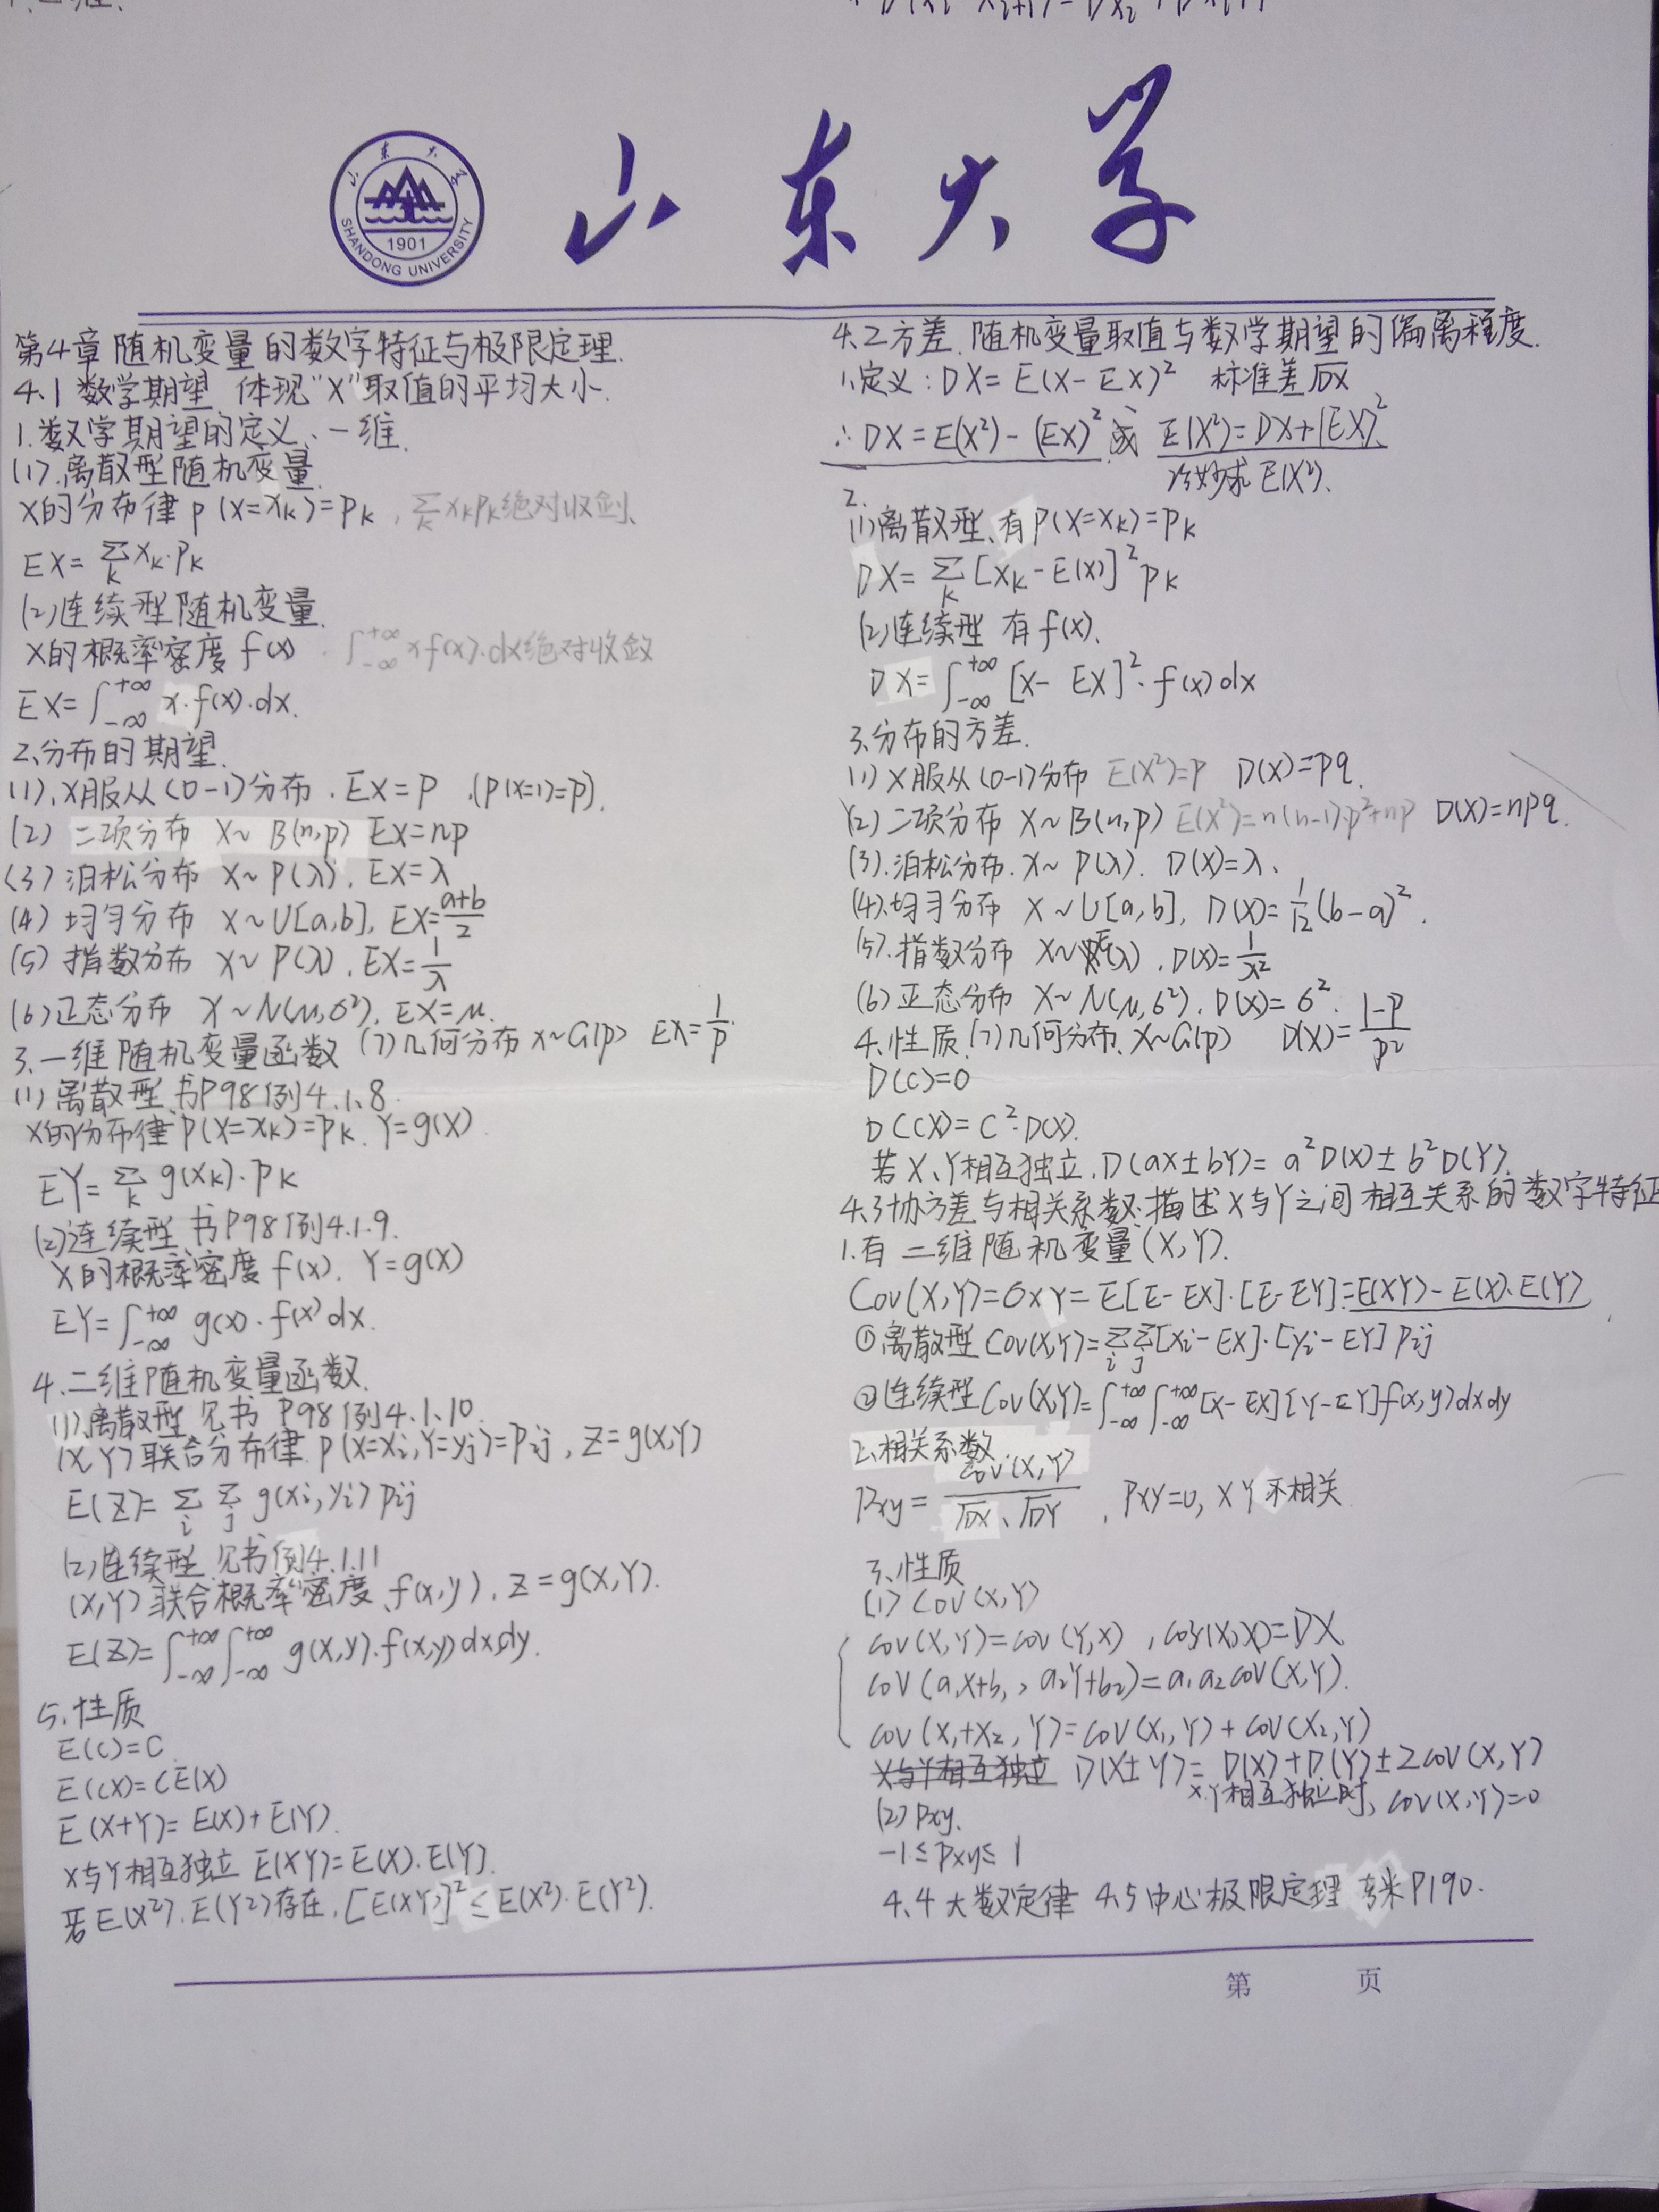 山东大学
山东大学
1901
SHANDONG UNIVERSITY
第4章 随机变量的数字特征与极限定理.
4.1 数学期望. 体现“X”取值的平均大小.
1.数学期望的定义、一维.
(1).离散型随机变量.
X的分布律 p(X=xk)=pk , Σk xkpk绝对收敛、
EX=Σk xk·pk
(2)连续型随机变量.
X的概率密度 f(x) . ∫-∞+∞ xf(x)·dx绝对收敛
EX=∫-∞+∞ x·f(x)·dx.
2、分布的期望.
(1)、X服从(0-1)分布 . EX=P .(P(X=1)=P).
(2) 二项分布 X~B(n,p) EX=np
(3) 泊松分布 X~P(λ). EX=λ
(4) 均匀分布 X~U[a,b], EX=(a+b)/2
(5) 指数分布 X~P(λ). EX=1/λ
(6)正态分布 X~N(μ,σ²). EX=μ.
(7)几何分布 X~G(p) EX=1/p
3.一维随机变量函数
(1)离散型 书P98例4.1.8
X的分布律P(X=xk)=Pk. Y=g(X)
EY=Σk g(xk)·pk
(2)连续型 书P98例4.1.9.
X的概率密度f(x). Y=g(X)
EY=∫-∞+∞ g(x)·f(x)dx.
4.二维随机变量函数.
(1)离散型 见书 P98例4.1.10
(X,Y)联合分布律 P(X=xi,Y=yj)=Pij, Z=g(X,Y)
E(Z)=Σi Σj g(xi,yi)pij
(2)连续型 见书例4.1.11
(X,Y)联合概率密度、f(x,y). Z=g(X,Y).
E(Z)=∫-∞+∞∫-∞+∞ g(x,y)·f(x,y)dxdy.
5.性质
E(C)=C
E(CX)=CE(X)
E(X+Y)=E(X)+E(Y).
X与Y相互独立 E(XY)=E(X)·E(Y).
若E(X²).E(Y²)存在,[E(XY)]²≤E(X²)·E(Y²).
4.2方差. 随机变量取值与数学期望的偏离程度.
1、定义: DX=E(X-EX)² 标准差√DX
∴DX=E(X²)-(EX)² 或 E(X²)=DX+(EX)².
巧妙求E(X²).
2.
(1)离散型、有P(X=xk)=pk
DX=Σk [xk-E(X)]²pk
(2)连续型 有f(x).
DX=∫-∞+∞ [x-EX]²·f(x)dx
3、分布的方差.
(1) X服从(0-1)分布 E(X²)=p D(X)=pq.
(2) 二项分布 X~B(n,p) E(X²)=n(n-1)p²+np D(X)=npq.
(3).泊松分布. X~P(λ). D(X)=λ.
(4).均匀分布 X~U[a,b], D(X)=1/12(b-a)².
(5).指数分布 X~E(λ) . D(X)=1/λ²
(6)正态分布 X~N(μ,σ²). D(X)=σ².
4.性质.(7)几何分布. X~G(p) D(X)=(1-p)/p²
D(C)=0
D(CX)=C²·D(X).
若X、Y相互独立.D(aX±bY)=a²D(X)±b²D(Y).
4.3协方差与相关系数.描述X与Y之间相互关系的数字特征
1.有二维随机变量(X,Y).
Cov(X,Y)=σxy=E[E-EX]·[E-EY]=E(XY)-E(X)·E(Y)
①离散型 Cov(X,Y)=Σi Σj [xi-EX]·[yi-EY]pij
②连续型 Cov(X,Y)=∫-∞+∞∫-∞+∞ [x-EX][Y-EY]f(x,y)dxdy
2.相关系数
Pxy=cov(X,Y)/(√DX、√DY) , PXY=0, X Y 不相关
3、性质
(1) Cov(X,Y)
cov(X,Y)=cov(Y,X) , cov(X,X)=DX
cov(a1X+b1, a2Y+b2)=a1a2cov(X,Y).
cov(X1+X2,Y)=cov(X1,Y)+cov(X2,Y)
X与Y相互独立 D(X±Y)=D(X)+D(Y)±2cov(X,Y)
X.Y相互独立时, cov(X,Y)=0
(2) Pxy.
-1≤Pxy≤1
4.4 大数定律 4.5中心极限定理 P190.
第 页